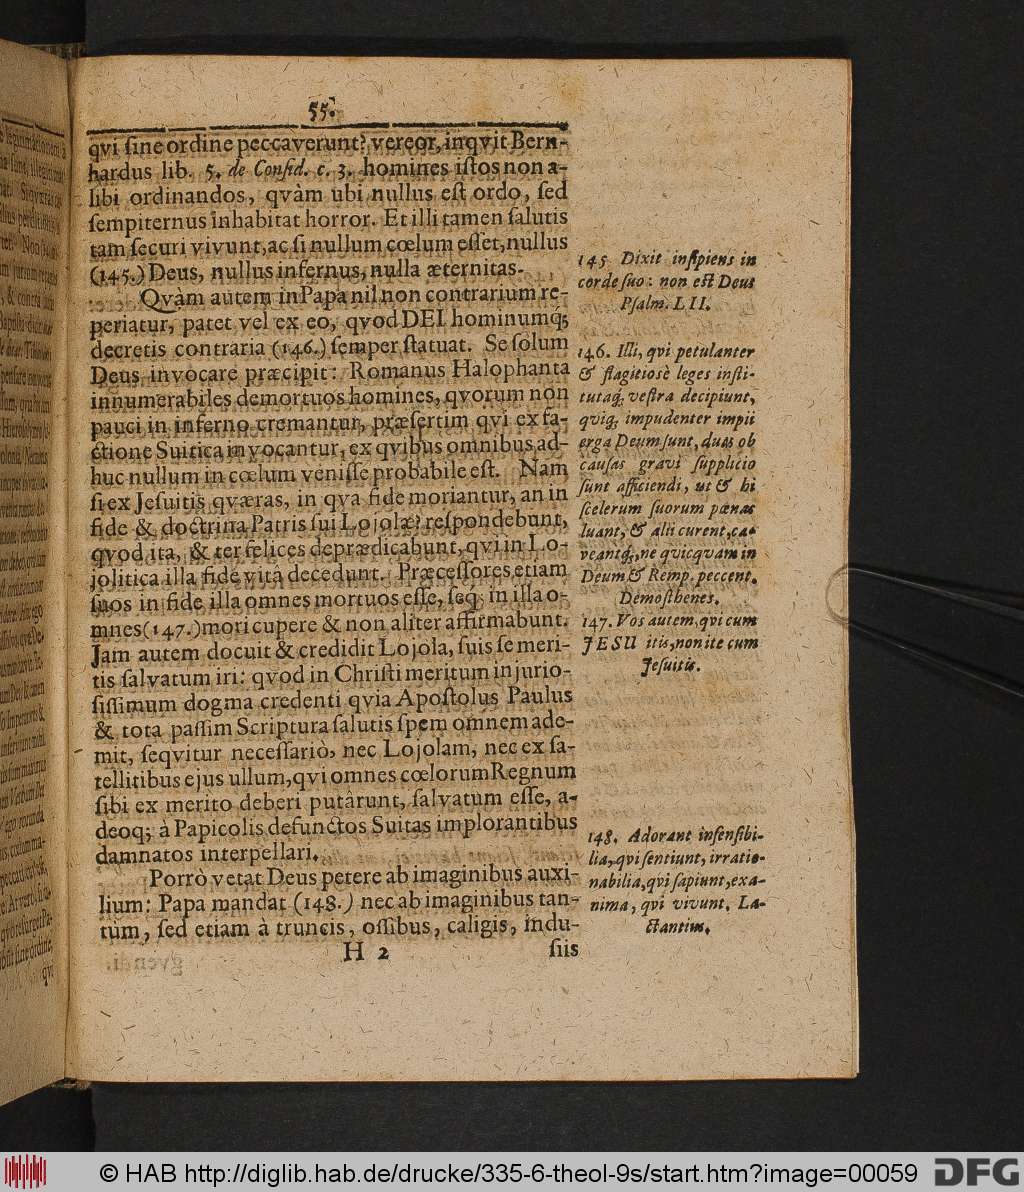 55.
qvi ſine ordine peccaverunt? vereor, inqvit Bern-
hardus lib. 5. de Conſid. c. 3. homines iſtos non a-
libi ordinandos, qvàm ubi nullus eſt ordo, ſed
ſempiternus inhabitat horror. Et illi tamen ſalutis
tam ſecuri vivunt, ac ſi nullum cœlum eſſet, nullus
(145.) Deus, nullus infernus, nulla æternitas.
Qvàm autem in Papa nil non contrarium re-
periatur, patet vel ex eo, qvod DEI hominumq́;
decretis contraria (146.) ſemper ſtatuat. Se ſolum
Deus invocare præcipit: Romanus Halophanta
innumerabiles demortuos homines, qvorum non
pauci in inferno cremantur, præſertim qvi ex fa-
ctione Suitica invocantur, ex qvibus omnibus ad-
huc nullum in cœlum veniſſe probabile eſt. Nam
ſi ex Jeſuitis qværas, in qva fide moriantur, an in
fide & doctrina Patris ſui Lojolæ? reſpondebunt,
qvod ita, & ter felices deprædicabunt, qvi in Lo-
jolitica illa fide vitâ decedunt. Præceſſores etiam
ſuos in fide illa omnes mortuos eſſe, ſeq; in illa o-
mnes (147.) mori cupere & non aliter affirmabunt.
Jam autem docuit & credidit Lojola, ſuis ſe meri-
tis ſalvatum iri: qvod in Chriſti meritum injurio-
ſiſſimum dogma credenti qvia Apoſtolus Paulus
& tota paſſim Scriptura ſalutis ſpem omnem ade-
mit, ſeqvitur neceſſariò, nec Lojolam, nec ex ſa-
tellitibus ejus ullum, qvi omnes cœlorum Regnum
ſibi ex merito deberi putârunt, ſalvatum eſſe, a-
deoq; à Papicolis defunctos Suitas implorantibus
damnatos interpellari.
Porrò vetat Deus petere ab imaginibus auxi-
lium: Papa mandat (148.) nec ab imaginibus tan-
tùm, ſed etiam à truncis, oſſibus, caligis, indu-
H 2 ſiis
145 Dixit inſipiens in
corde ſuo: non eſt Deus
Pſalm. LII.
146. Illi, qvi petulanter
& flagitioſè leges inſti-
tutaq́; veſtra decipiunt,
qviq́; impudenter impii
erga Deum ſunt, duas ob
cauſas gravi ſupplicio
ſunt afficiendi, ut & hi
ſcelerum ſuorum pœnas
luant, & alii curent, ca-
veantq́;, ne qvicqvam in
Deum & Remp. peccent.
Demoſthenes.
147. Vos autem, qvi cum
JESU itis, non ite cum
Jeſuitis.
148. Adorant inſenſibi-
lia, qvi ſentiunt, irratio-
nabilia, qvi ſapiunt, exa-
nima, qvi vivunt. La-
ctantius.
© HAB http://diglib.hab.de/drucke/335-6-theol-9s/start.htm?image=00059
DFG